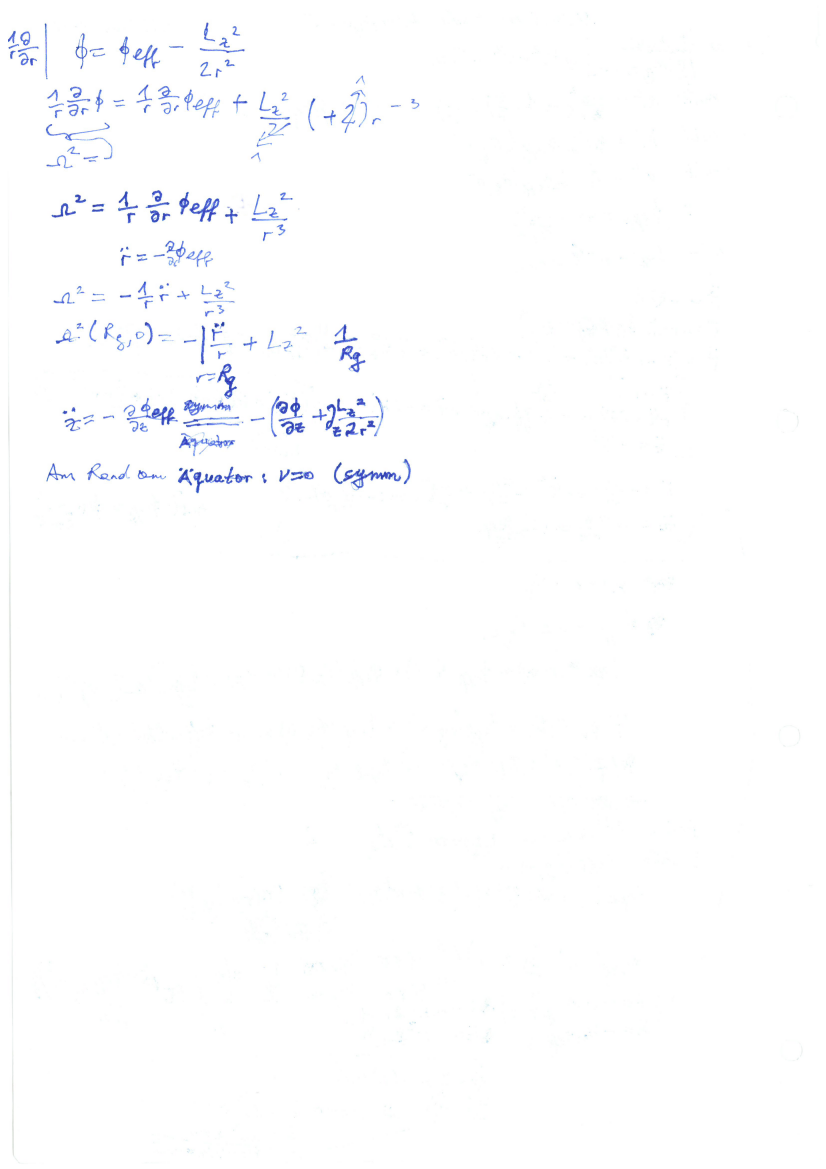 1/r ∂/∂r | ϕ = ϕeff − Lz²/2r²
1/r ∂/∂r ϕ = 1/r ∂/∂r ϕeff + Lz²/2 (+2) r⁻³
Ω² =
Ω² = 1/r ∂/∂r ϕeff + Lz²/r³
r̈ = −∂/∂r ϕeff
Ω² = −1/r r̈ + Lz²/r³
Ω²(Rg,0) = −| r̈/r + Lz² 1/Rg
r=Rg
z̈ = − ∂ϕeff/∂z = −(∂ϕ/∂z + ∂z Lz²/2r²)
Am Rand am Äquator: ν=0 (symm)